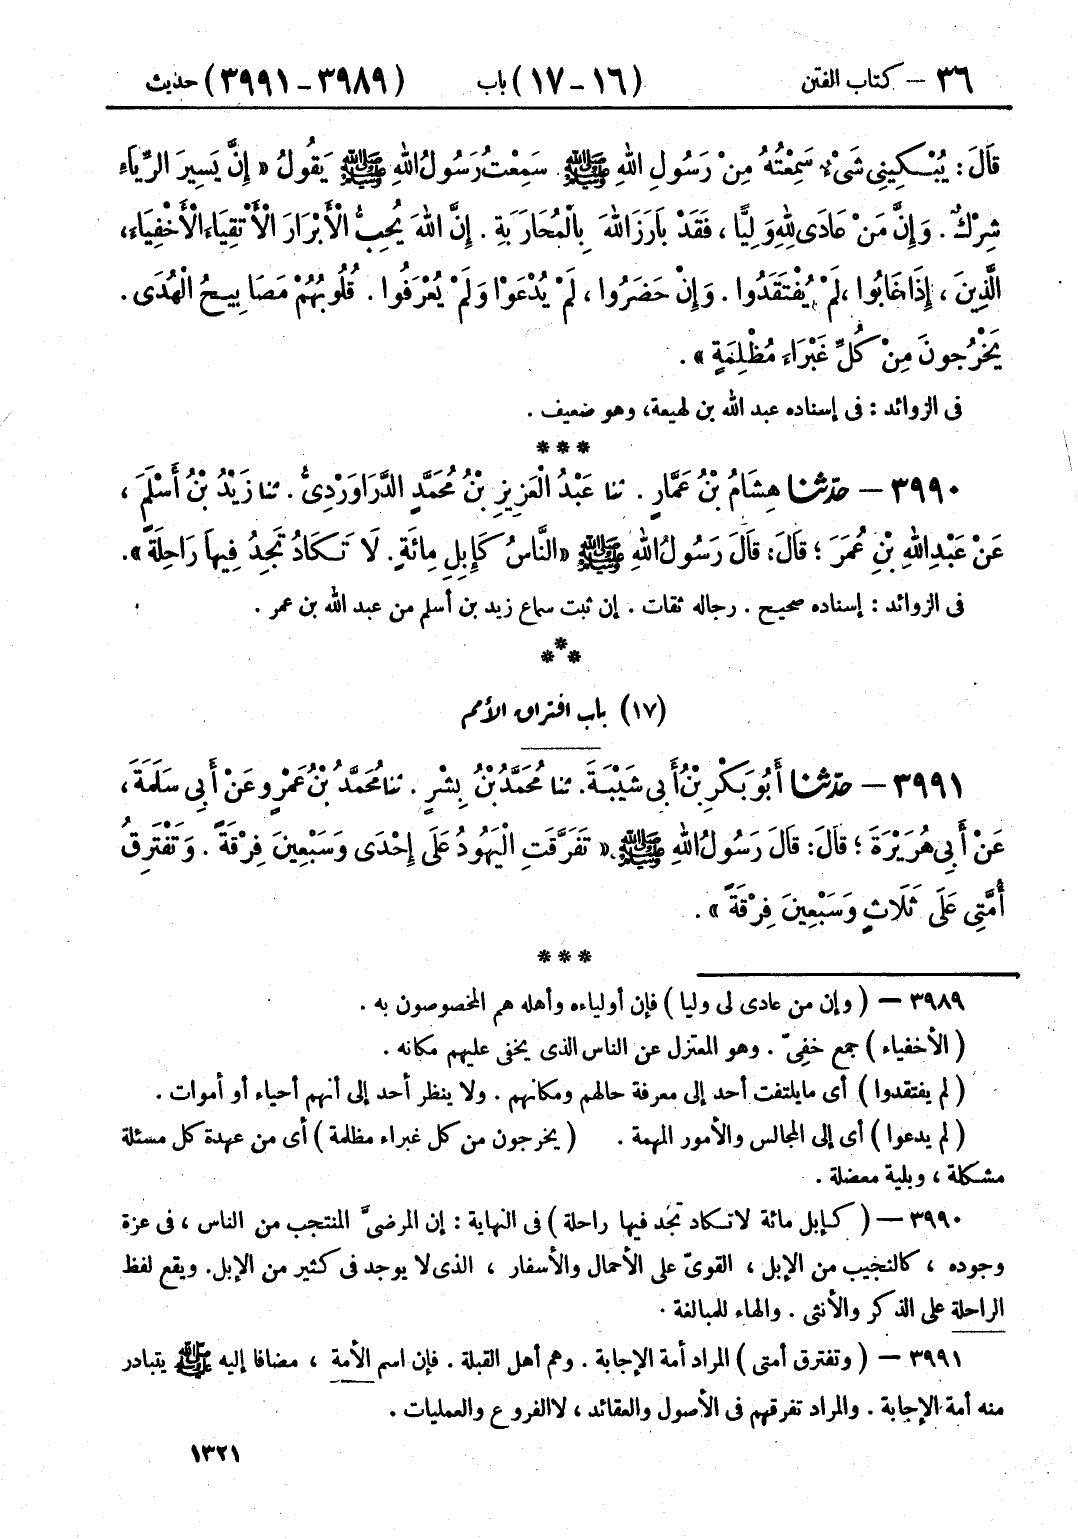 ٣٦ – كتاب الفتن (١٦-١٧) باب (٣٩٨٩-٣٩٩١) حديث
قَالَ : يُبْكِينِي شَىْءٌ سَمِعْتُهُ مِنْ رَسُولِ اللهِ ﷺ سَمِعْتُ رَسُولَ اللهِ ﷺ يَقُولُ « إِنَّ يَسِيرَ الرِّيَاءِ
شِرْكٌ . وَإِنَّ مَنْ عَادَى لِلهِ وَلِيًّا ، فَقَدْ بَارَزَ اللهَ بِالْمُحَارَبَةِ . إِنَّ اللهَ يُحِبُّ الْأَبْرَارَ الْأَتْقِيَاءَ الْأَخْفِيَاءَ ،
الَّذِينَ ، إِذَا غَابُوا ، لَمْ يُفْتَقَدُوا . وَإِنْ حَضَرُوا ، لَمْ يُدْعَوْا وَلَمْ يُعْرَفُوا . قُلُوبُهُمْ مَصَابِيحُ الْهُدَى .
يَخْرُجُونَ مِنْ كُلِّ غَبْرَاءَ مُظْلِمَةٍ » .
فى الزوائد : فى إسناده عبد الله بن لهيعة، وهو ضعيف .
* * *
٣٩٩٠ – حدّثنا هِشَامُ بْنُ عَمَّارٍ . ثنا عَبْدُ الْعَزِيزِ بْنُ مُحَمَّدٍ الدَّرَاوَرْدِىُّ . ثنا زَيْدُ بْنُ أَسْلَمَ ،
عَنْ عَبْدِ اللهِ بْنِ عُمَرَ ؛ قَالَ : قَالَ رَسُولُ اللهِ ﷺ « النَّاسُ كَإِبِلِ مِائَةٍ . لَا تَكَادُ تَجِدُ فِيهَا رَاحِلَةً » .
فى الزوائد : إسناده صحيح . رجاله ثقات . إن ثبت سماع زيد بن أسلم من عبد الله بن عمر .
* * *
(١٧) باب افتراق الأمم
٣٩٩١ – حدّثنا أَبُو بَكْرِ بْنُ أَبِي شَيْبَةَ . ثنا مُحَمَّدُ بْنُ بِشْرٍ . ثنا مُحَمَّدُ بْنُ عَمْرٍو عَنْ أَبِي سَلَمَةَ ،
عَنْ أَبِي هُرَيْرَةَ ؛ قَالَ : قَالَ رَسُولُ اللهِ ﷺ « تَفَرَّقَتِ الْيَهُودُ عَلَى إِحْدَى وَسَبْعِينَ فِرْقَةً . وَتَفْتَرِقُ
أُمَّتِي عَلَى ثَلَاثٍ وَسَبْعِينَ فِرْقَةً » .
* * *
٣٩٨٩ – ( وإن من عادى لى وليا ) فإن أولياءه وأهله هم المخصوصون به .
( الأخفياء ) جمع خفىّ . وهو المعتزل عن الناس الذى يخفى عليهم مكانه .
( لم يفتقدوا ) أى مايلتفت أحد إلى معرفة حالهم ومكانهم . ولا ينظر أحد إلى أنهم أحياء أو أموات .
( لم يدعوا ) أى إلى المجالس والأمور المهمة . ( يخرجون من كل غبراء مظلمة ) أى من عهدة كل مسئلة
مشكلة ، وبلية معضلة .
٣٩٩٠ – ( كإبل مائة لاتكاد تجد فيها راحلة ) فى النهاية : إن المرضىّ المنتجب من الناس ، فى عزة
وجوده ، كالنجيب من الإبل ، القوىّ على الأحمال والأسفار ، الذى لا يوجد فى كثير من الإبل. ويقع لفظ
الراحلة على الذكر والأنثى . والهاء للمبالغة .
٣٩٩١ – ( وتفترق أمتى ) المراد أمة الإجابة . وهم أهل القبلة . فإن اسم الأمة ، مضافا إليه ﷺ يتبادر
منه أمة الإجابة . والمراد تفرقهم فى الأصول والعقائد ، لاالفروع والعمليات .
١٣٢١